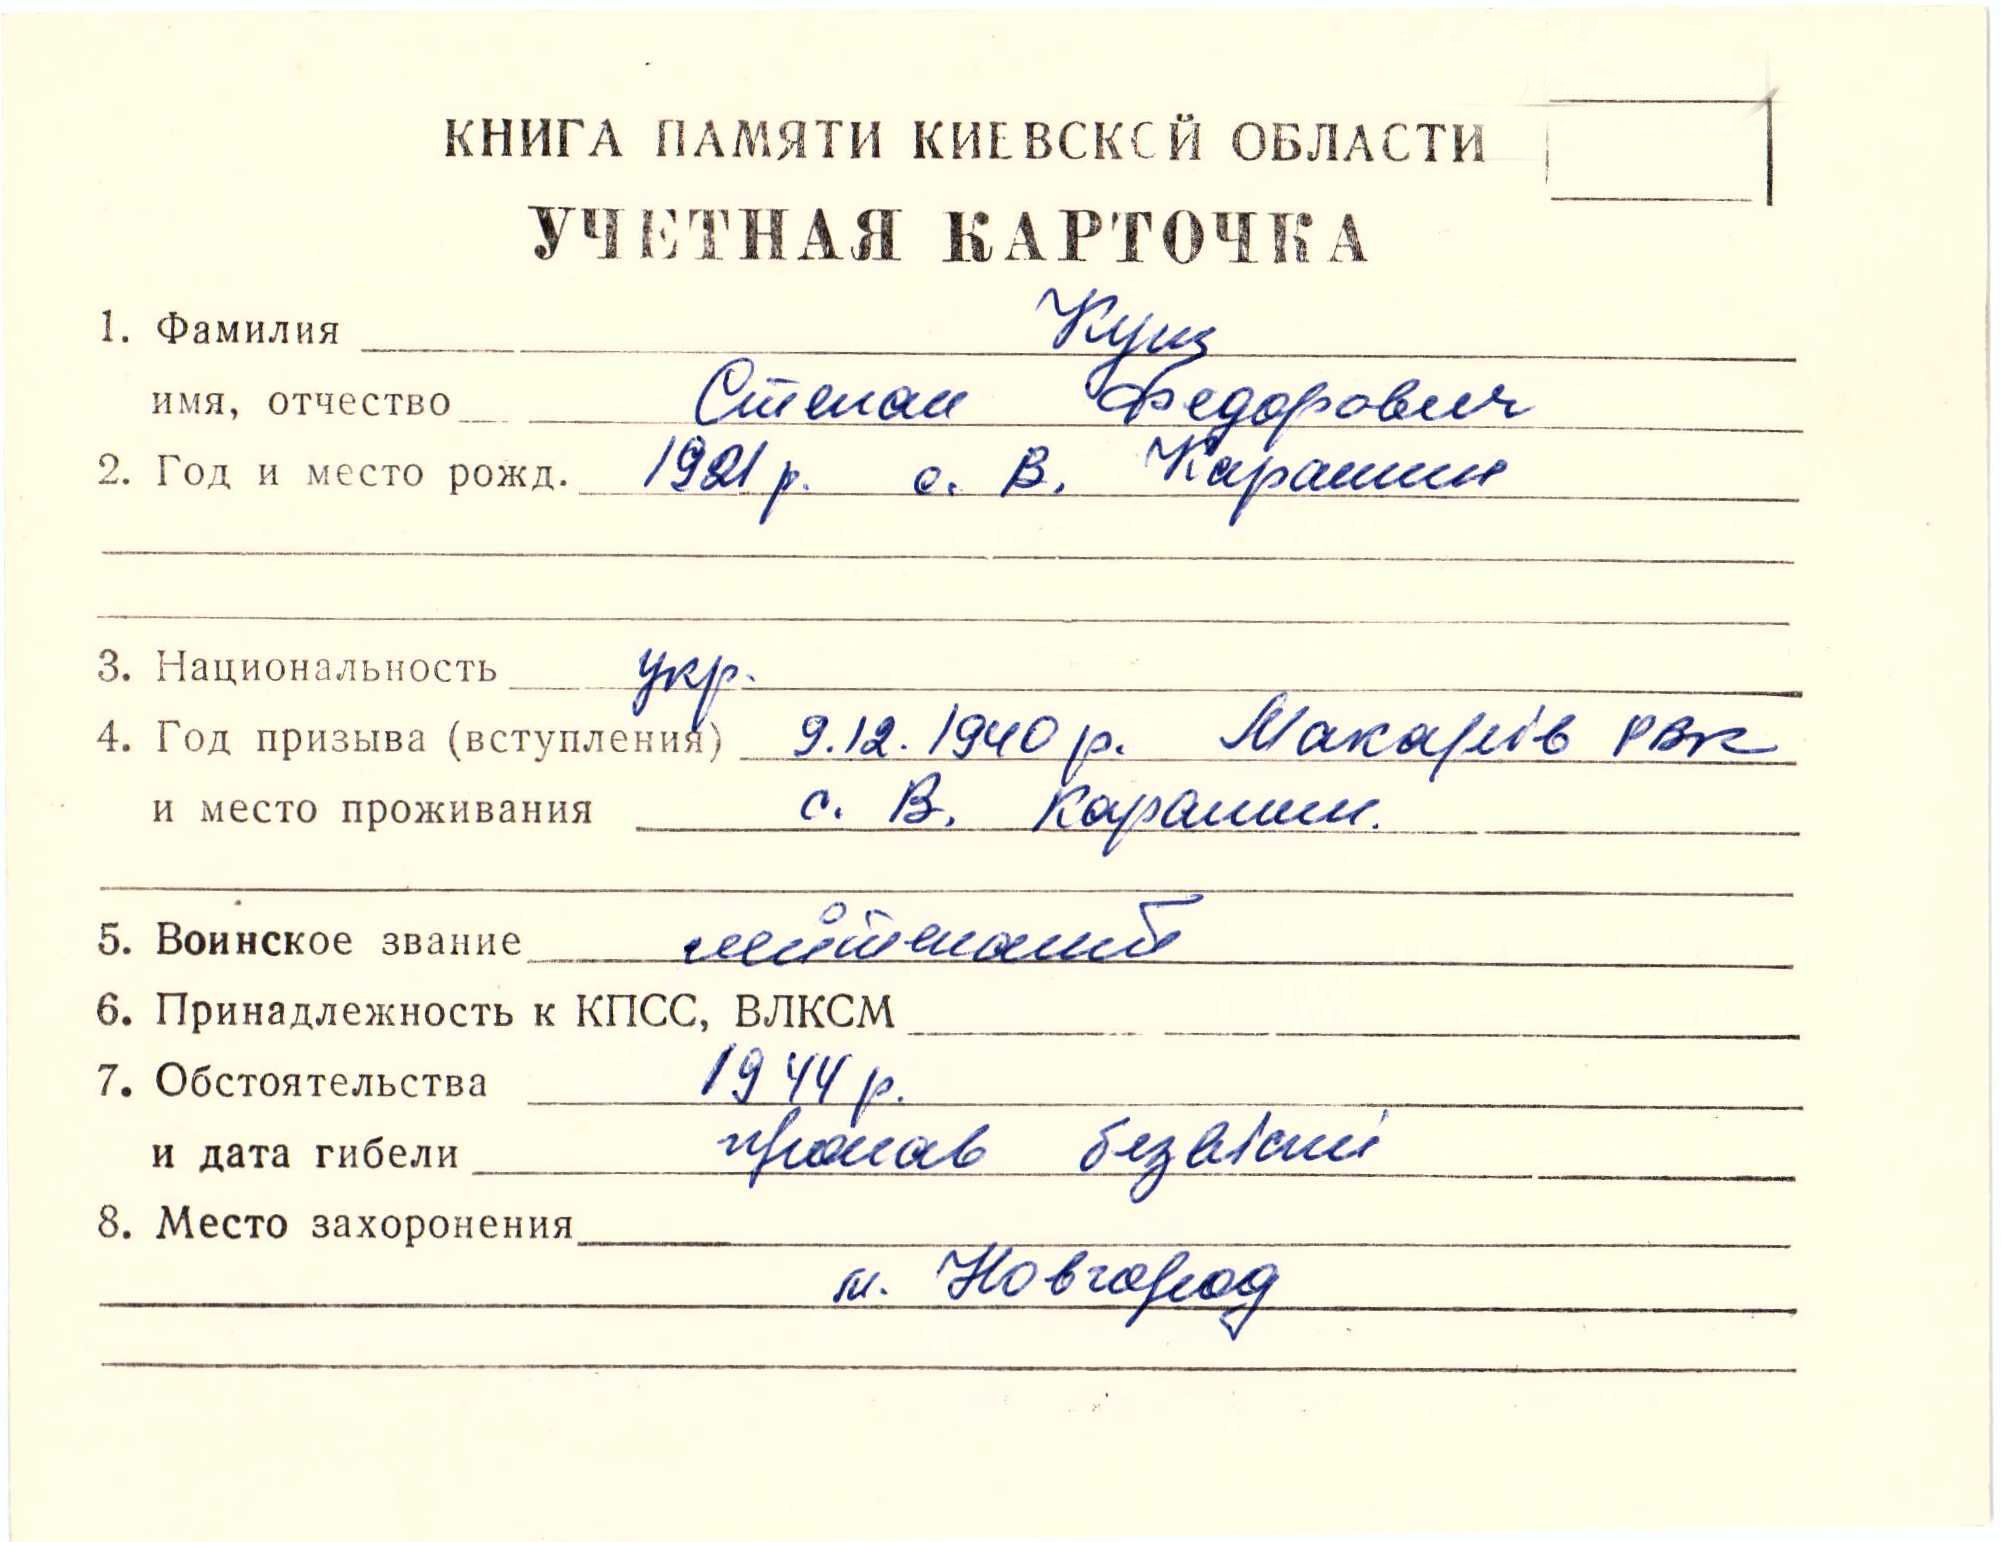 КНИГА ПАМЯТИ КИЕВСКОЙ ОБЛАСТИ
УЧЕТНАЯ КАРТОЧКА
1. Фамилия Кущ
имя, отчество Степан Федорович
2. Год и место рожд. 1921 р. с. В. Карашин
3. Национальность укр.
4. Год призыва (вступления) 9.12.1940 р. Макарів РВК
и место проживания с. В. Карашин.
5. Воинское звание лейтенант
6. Принадлежность к КПСС, ВЛКСМ
7. Обстоятельства 1944 р.
и дата гибели пропав безвісті
8. Место захоронения
м. Новгород